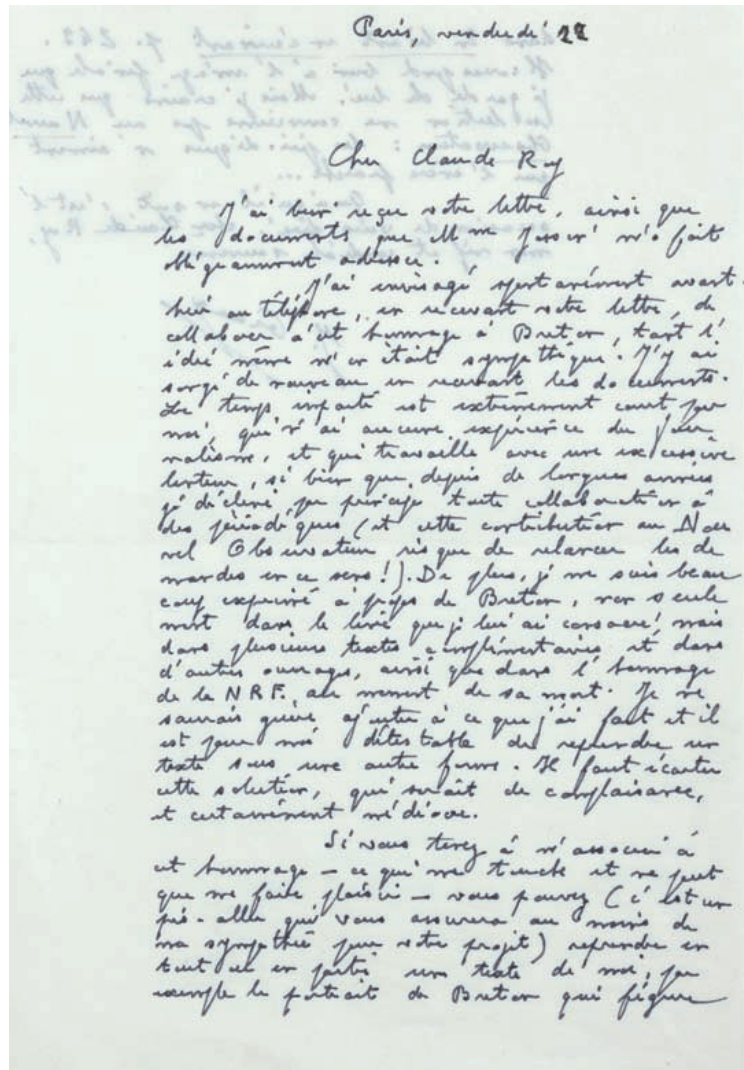 Paris, vendredi 22
Cher Claude Roy
J'ai bien reçu votre lettre, ainsi que
les documents que Mme Jossin m'a fait
obligeamment adresser.
J'ai envisagé spontanément avant-
hier au téléphone, en recevant votre lettre, de
collaborer à cet hommage à Breton, tant l'
idée même m'en était sympathique. J'y ai
songé de nouveau en recevant les documents.
Le temps imparti est extrêmement court pour
moi, qui n'ai aucune expérience du jour
nalisme, et qui travaille avec une excessive
lenteur, si bien que depuis de longues années
j'ai décliné, par principe toute collaboration à
des périodiques (et cette contribution au Nou
vel Observateur risque de relancer les de
mandes en ce sens!). De plus, je me suis beau
coup exprimé à propos de Breton, non seule
ment dans le livre que je lui ai consacré, mais
dans plusieurs textes complémentaires et dans
d'autres ouvrages, ainsi que dans l'hommage
de la NRF, au moment de sa mort. Je ne
saurais guère ajouter à ce que j'ai fait et il
est pour moi détestable de reprendre un
texte sous une autre forme. Il faut écarter
cette solution, qui serait de complaisance,
et certainement médiocre.
Si vous tenez à m'associer à
cet hommage – ce qui me touche et ne peut
que me faire plaisir – vous pouvez (c'est un
pis-aller qui vous assurera au moins de
ma sympathie pour votre projet) reprendre en
tout ou en partie un texte de moi, par
exemple le portrait de Breton qui figure